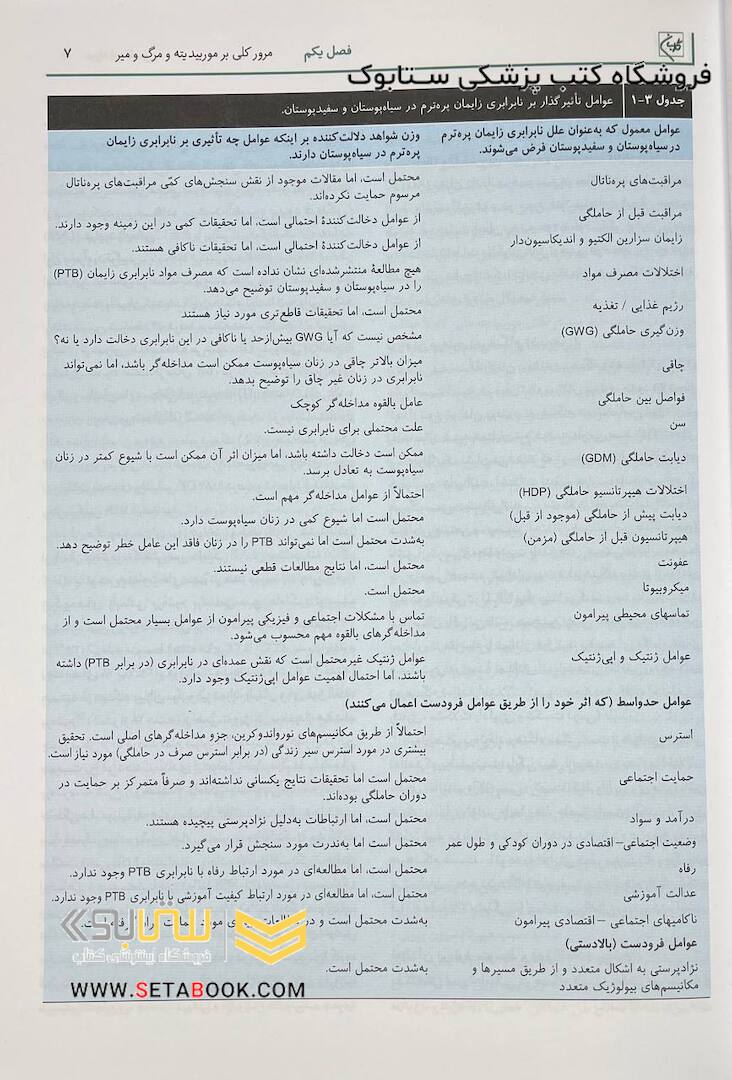 فصل یکم مرور کلی بر موربیدیته و مرگ و میر ۷
فروشگاه کتب پزشکی ستابوک
جدول ۳-۱ عوامل تأثیرگذار بر نابرابری زایمان پره‌ترم در سیاه‌پوستان و سفیدپوستان.
عوامل معمول که به‌عنوان علل نابرابری زایمان پره‌ترم
در سیاه‌پوستان و سفیدپوستان فرض می‌شوند.
وزن شواهد دلالت‌کننده بر اینکه عوامل چه تأثیری بر نابرابری زایمان
پره‌ترم در سیاه‌پوستان دارند.
مراقبت‌های پره‌ناتال
محتمل است، اما مقالات موجود از نقش سنجش‌های کمّی مراقبت‌های پره‌ناتال
مرسوم حمایت نکرده‌اند.
مراقبت قبل از حاملگی
از عوامل دخالت‌کنندهٔ احتمالی است، اما تحقیقات کمی در این زمینه وجود دارند.
زایمان سزارین الکتیو و اندیکاسیون‌دار
از عوامل دخالت‌کنندهٔ احتمالی است، اما تحقیقات ناکافی هستند.
اختلالات مصرف مواد
هیچ مطالعهٔ منتشرشده‌ای نشان نداده است که مصرف مواد نابرابری زایمان (PTB)
را در سیاه‌پوستان و سفیدپوستان توضیح می‌دهد.
رژیم غذایی / تغذیه
محتمل است، اما تحقیقات قاطع‌تری مورد نیاز هستند
وزن‌گیری حاملگی (GWG)
مشخص نیست که آیا GWG بیش‌ازحد یا ناکافی در این نابرابری دخالت دارد یا نه؟
چاقی
میزان بالاتر چاقی در زنان سیاه‌پوست ممکن است مداخله‌گر باشد، اما نمی‌تواند
نابرابری در زنان غیر چاق را توضیح بدهد.
فواصل بین حاملگی
عامل بالقوه مداخله‌گر کوچک
سن
علت محتملی برای نابرابری نیست.
دیابت حاملگی (GDM)
ممکن است دخالت داشته باشد، اما میزان اثر آن ممکن است با شیوع کمتر در زنان
سیاه‌پوست به تعادل برسد.
اختلالات هیپرتانسیو حاملگی (HDP)
احتمالاً از عوامل مداخله‌گر مهم است.
دیابت پیش از حاملگی (موجود از قبل)
محتمل است اما شیوع کمی در زنان سیاه‌پوست دارد.
هیپرتانسیون قبل از حاملگی (مزمن)
به‌شدت محتمل است اما نمی‌تواند PTB را در زنان فاقد این عامل خطر توضیح دهد.
عفونت
محتمل است، اما نتایج مطالعات قطعی نیستند.
میکروبیوتا
محتمل است.
تماسهای محیطی پیرامون
تماس با مشکلات اجتماعی و فیزیکی پیرامون از عوامل بسیار محتمل است و از
مداخله‌گرهای بالقوه مهم محسوب می‌شود.
عوامل ژنتیک و اپی‌ژنتیک
عوامل ژنتیک غیرمحتمل است که نقش عمده‌ای در نابرابری (در برابر PTB) داشته
باشند، اما احتمال اهمیت عوامل اپی‌ژنتیک وجود دارد.
عوامل حدواسط (که اثر خود را از طریق عوامل فرودست اعمال می‌کنند)
استرس
احتمالاً از طریق مکانیسم‌های نورواندوکرین، جزو مداخله‌گرهای اصلی است. تحقیق
بیشتری در مورد استرس سیر زندگی (در برابر استرس صرف در حاملگی) مورد نیاز است.
حمایت اجتماعی
محتمل است اما تحقیقات نتایج یکسانی نداشته‌اند و صرفاً متمرکز بر حمایت در
دوران حاملگی بوده‌اند.
درآمد و سواد
محتمل است، اما ارتباطات به‌دلیل نژادپرستی پیچیده هستند.
وضعیت اجتماعی-اقتصادی در دوران کودکی و طول عمر
محتمل است اما به‌ندرت مورد سنجش قرار می‌گیرد.
رفاه
محتمل است، اما مطالعه‌ای در مورد ارتباط رفاه با نابرابری PTB وجود ندارد.
عدالت آموزشی
محتمل است، اما مطالعه‌ای در مورد ارتباط کیفیت آموزشی با نابرابری PTB وجود ندارد.
ناکامیهای اجتماعی -اقتصادی پیرامون
به‌شدت محتمل است و در
عوامل فرودست (بالادستی)
نژادپرستی به اشکال متعدد و از طریق مسیرها و
مکانیسم‌های بیولوژیک متعدد
به‌شدت محتمل است.
ستابوک
فروشگاه اینترنتی کتاب
WWW.SETABOOK.COM